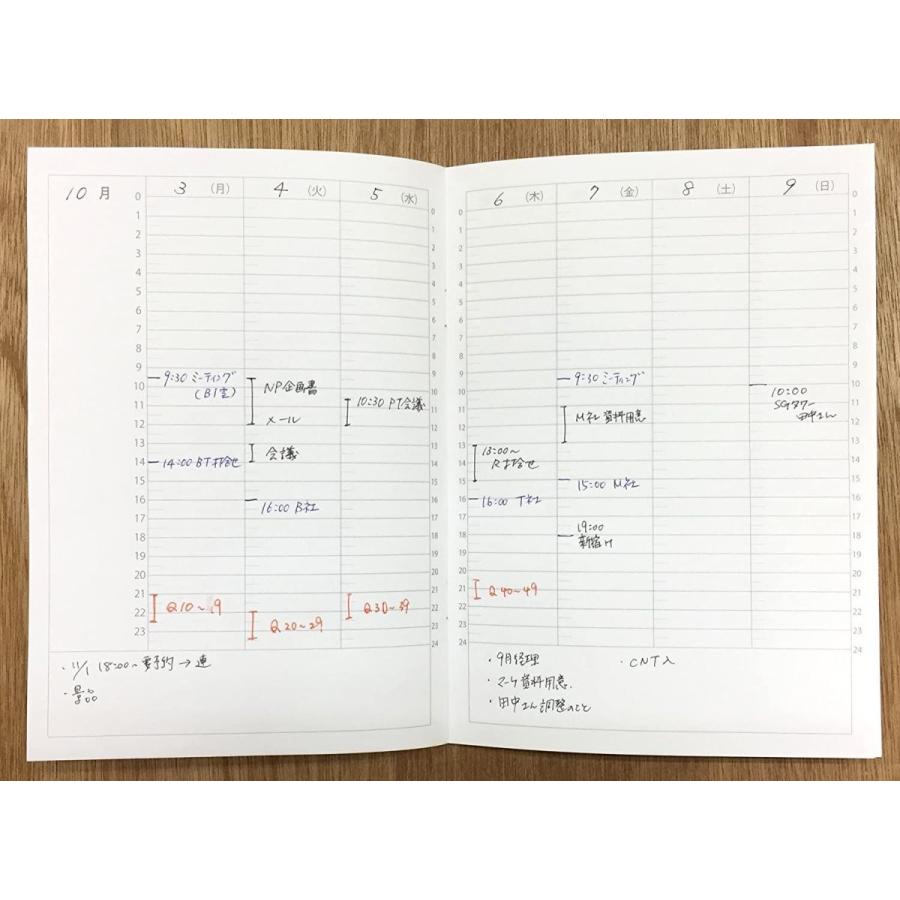 10月
3 (月) 4 (火) 5 (水)
0
1
2
3
4
5
6
7
8
9
10
11
12
13
14
15
16
17
18
19
20
21
22
23
9:30 ミーティング
(B1室)
14:00 BT打合せ
Q10〜19
NP企画書
メール
会議
16:00 B社
Q20〜29
10:30 PT会議
Q30〜39
0
1
2
3
4
5
6
7
8
9
10
11
12
13
14
15
16
17
18
19
20
21
22
23
24
・11/1 18:00〜要予約→連
・景品
6 (木) 7 (金) 8 (土) 9 (日)
0
1
2
3
4
5
6
7
8
9
10
11
12
13
14
15
16
17
18
19
20
21
22
23
24
13:00〜
R打合せ
16:00 T社
Q40〜49
9:30 ミーティング
M社資料用意
15:00 M社
19:00
新宿け
10:00
SGタワー
田中さん
0
1
2
3
4
5
6
7
8
9
10
11
12
13
14
15
16
17
18
19
20
21
22
23
24
・9月経理 ・CNT入
・マーケ資料用意.
・田中さん調整のこと